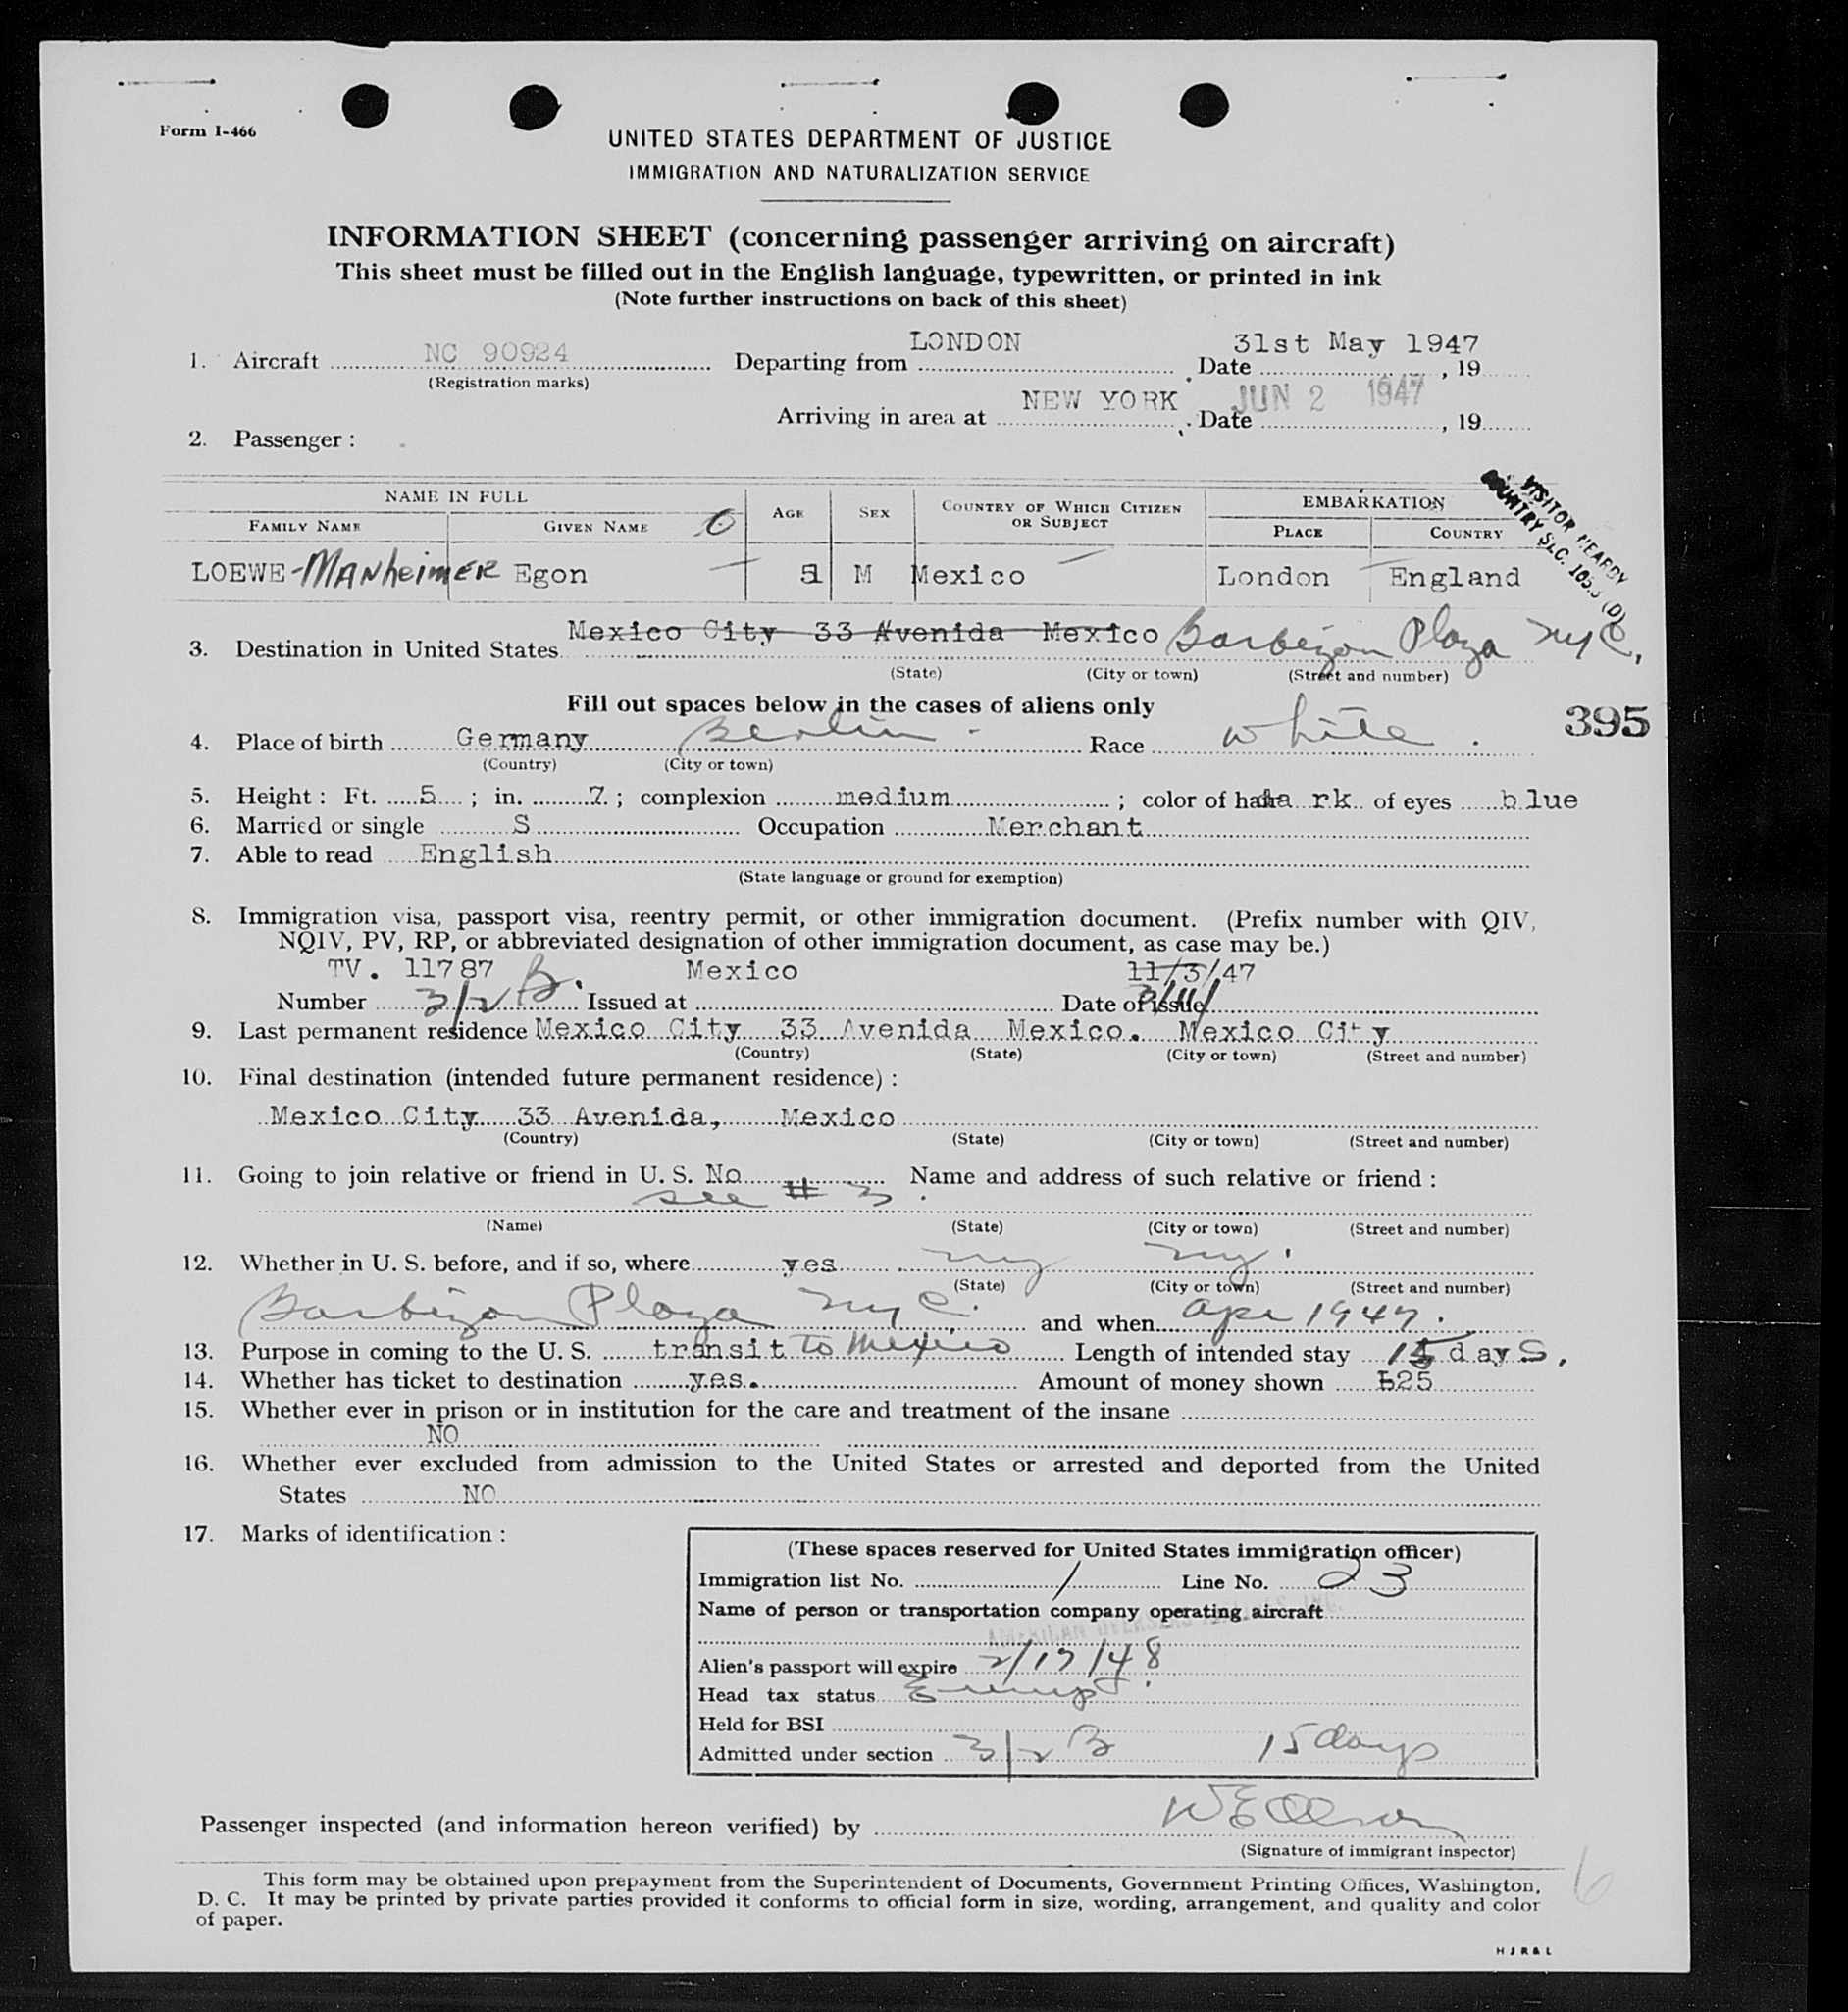 Form I-466
UNITED STATES DEPARTMENT OF JUSTICE
IMMIGRATION AND NATURALIZATION SERVICE
INFORMATION SHEET (concerning passenger arriving on aircraft)
This sheet must be filled out in the English language, typewritten, or printed in ink
(Note further instructions on back of this sheet)
1. Aircraft NC 90924 Departing from LONDON Date 31st May 1947, 19
(Registration marks)
Arriving in area at NEW YORK Date JUN 2 1947, 19
2. Passenger :
NAME IN FULL AGE SEX COUNTRY OF WHICH CITIZEN OR SUBJECT EMBARKATION
FAMILY NAME GIVEN NAME PLACE COUNTRY
LOEWE-MANheimER Egon M Mexico London England
VISITOR
COUNTRY SEC.
3. Destination in United States Mexico City 33 Avenida Mexico Barbizon Plaza NYC,
(State) (City or town) (Street and number)
Fill out spaces below in the cases of aliens only
395
4. Place of birth Germany Berlin - Race white.
(Country) (City or town)
5. Height : Ft. 5 ; in. 7. ; complexion medium ; color of hair da rk of eyes blue
6. Married or single S Occupation Merchant
7. Able to read English
(State language or ground for exemption)
8. Immigration visa, passport visa, reentry permit, or other immigration document. (Prefix number with QIV,
NQIV, PV, RP, or abbreviated designation of other immigration document, as case may be.)
TV. 11787 Mexico 11/3/47
Number 3/2 B. Issued at Date of issue 3/11/
9. Last permanent residence Mexico City 33 Avenida Mexico. Mexico City
(Country) (State) (City or town) (Street and number)
10. Final destination (intended future permanent residence) :
Mexico City 33 Avenida, Mexico
(Country) (State) (City or town) (Street and number)
11. Going to join relative or friend in U. S. No Name and address of such relative or friend :
see # 3.
(Name) (State) (City or town) (Street and number)
12. Whether in U. S. before, and if so, where yes ny ny.
(State) (City or town) (Street and number)
Barbizon Plaza NYC. and when apr 1947.
13. Purpose in coming to the U. S. transit to Mexico Length of intended stay 15 days.
14. Whether has ticket to destination yes. Amount of money shown £25
15. Whether ever in prison or in institution for the care and treatment of the insane
NO
16. Whether ever excluded from admission to the United States or arrested and deported from the United
States NO
17. Marks of identification :
(These spaces reserved for United States immigration officer)
Immigration list No. 1 Line No. 23
Name of person or transportation company operating aircraft
AMERICAN OVERSEAS AIRLINES INC.
Alien's passport will expire 2/17/48
Head tax status Exempt.
Held for BSI
Admitted under section 3/2 B 15 days
Passenger inspected (and information hereon verified) by
(Signature of immigrant inspector)
6
This form may be obtained upon prepayment from the Superintendent of Documents, Government Printing Offices, Washington,
D. C. It may be printed by private parties provided it conforms to official form in size, wording, arrangement, and quality and color
of paper.
H J R & L